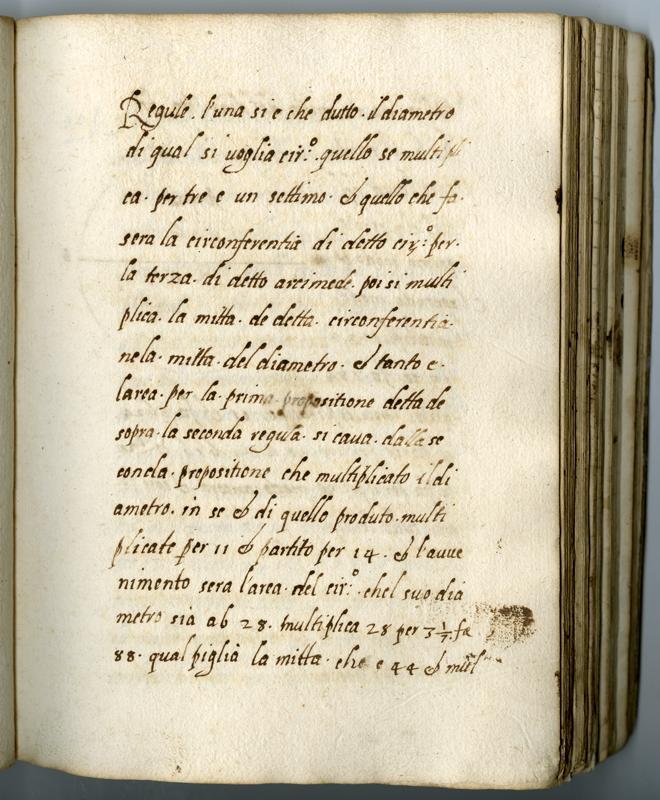 Regule. l'una si e che dutto. il diametro
di qual si voglia cir:º. quello se multipli
ca. per tre e un settimo. & quello che fa.
sera la circonferentia di detto cir:º per.
la terza. di detto arcimede. poi si multi
plica. la mitta. de detta. circonferentia.
nela. mitta. del diametro. & tanto e.
larea. per la. prima propositione detta de
sopra. la seconda regula. si cava. dalla se
conda. prepositione che multiplicato il di
ametro. in se & di quello produto. multi
plicate per 11 & partito per 14. & l'avve
nimento sera l'area. del cir:º. chel suo dia
metro sia ab 28. multiplica 28 per 3 1/7. fa
88. qual piglia la mitta. che e 44 & mul